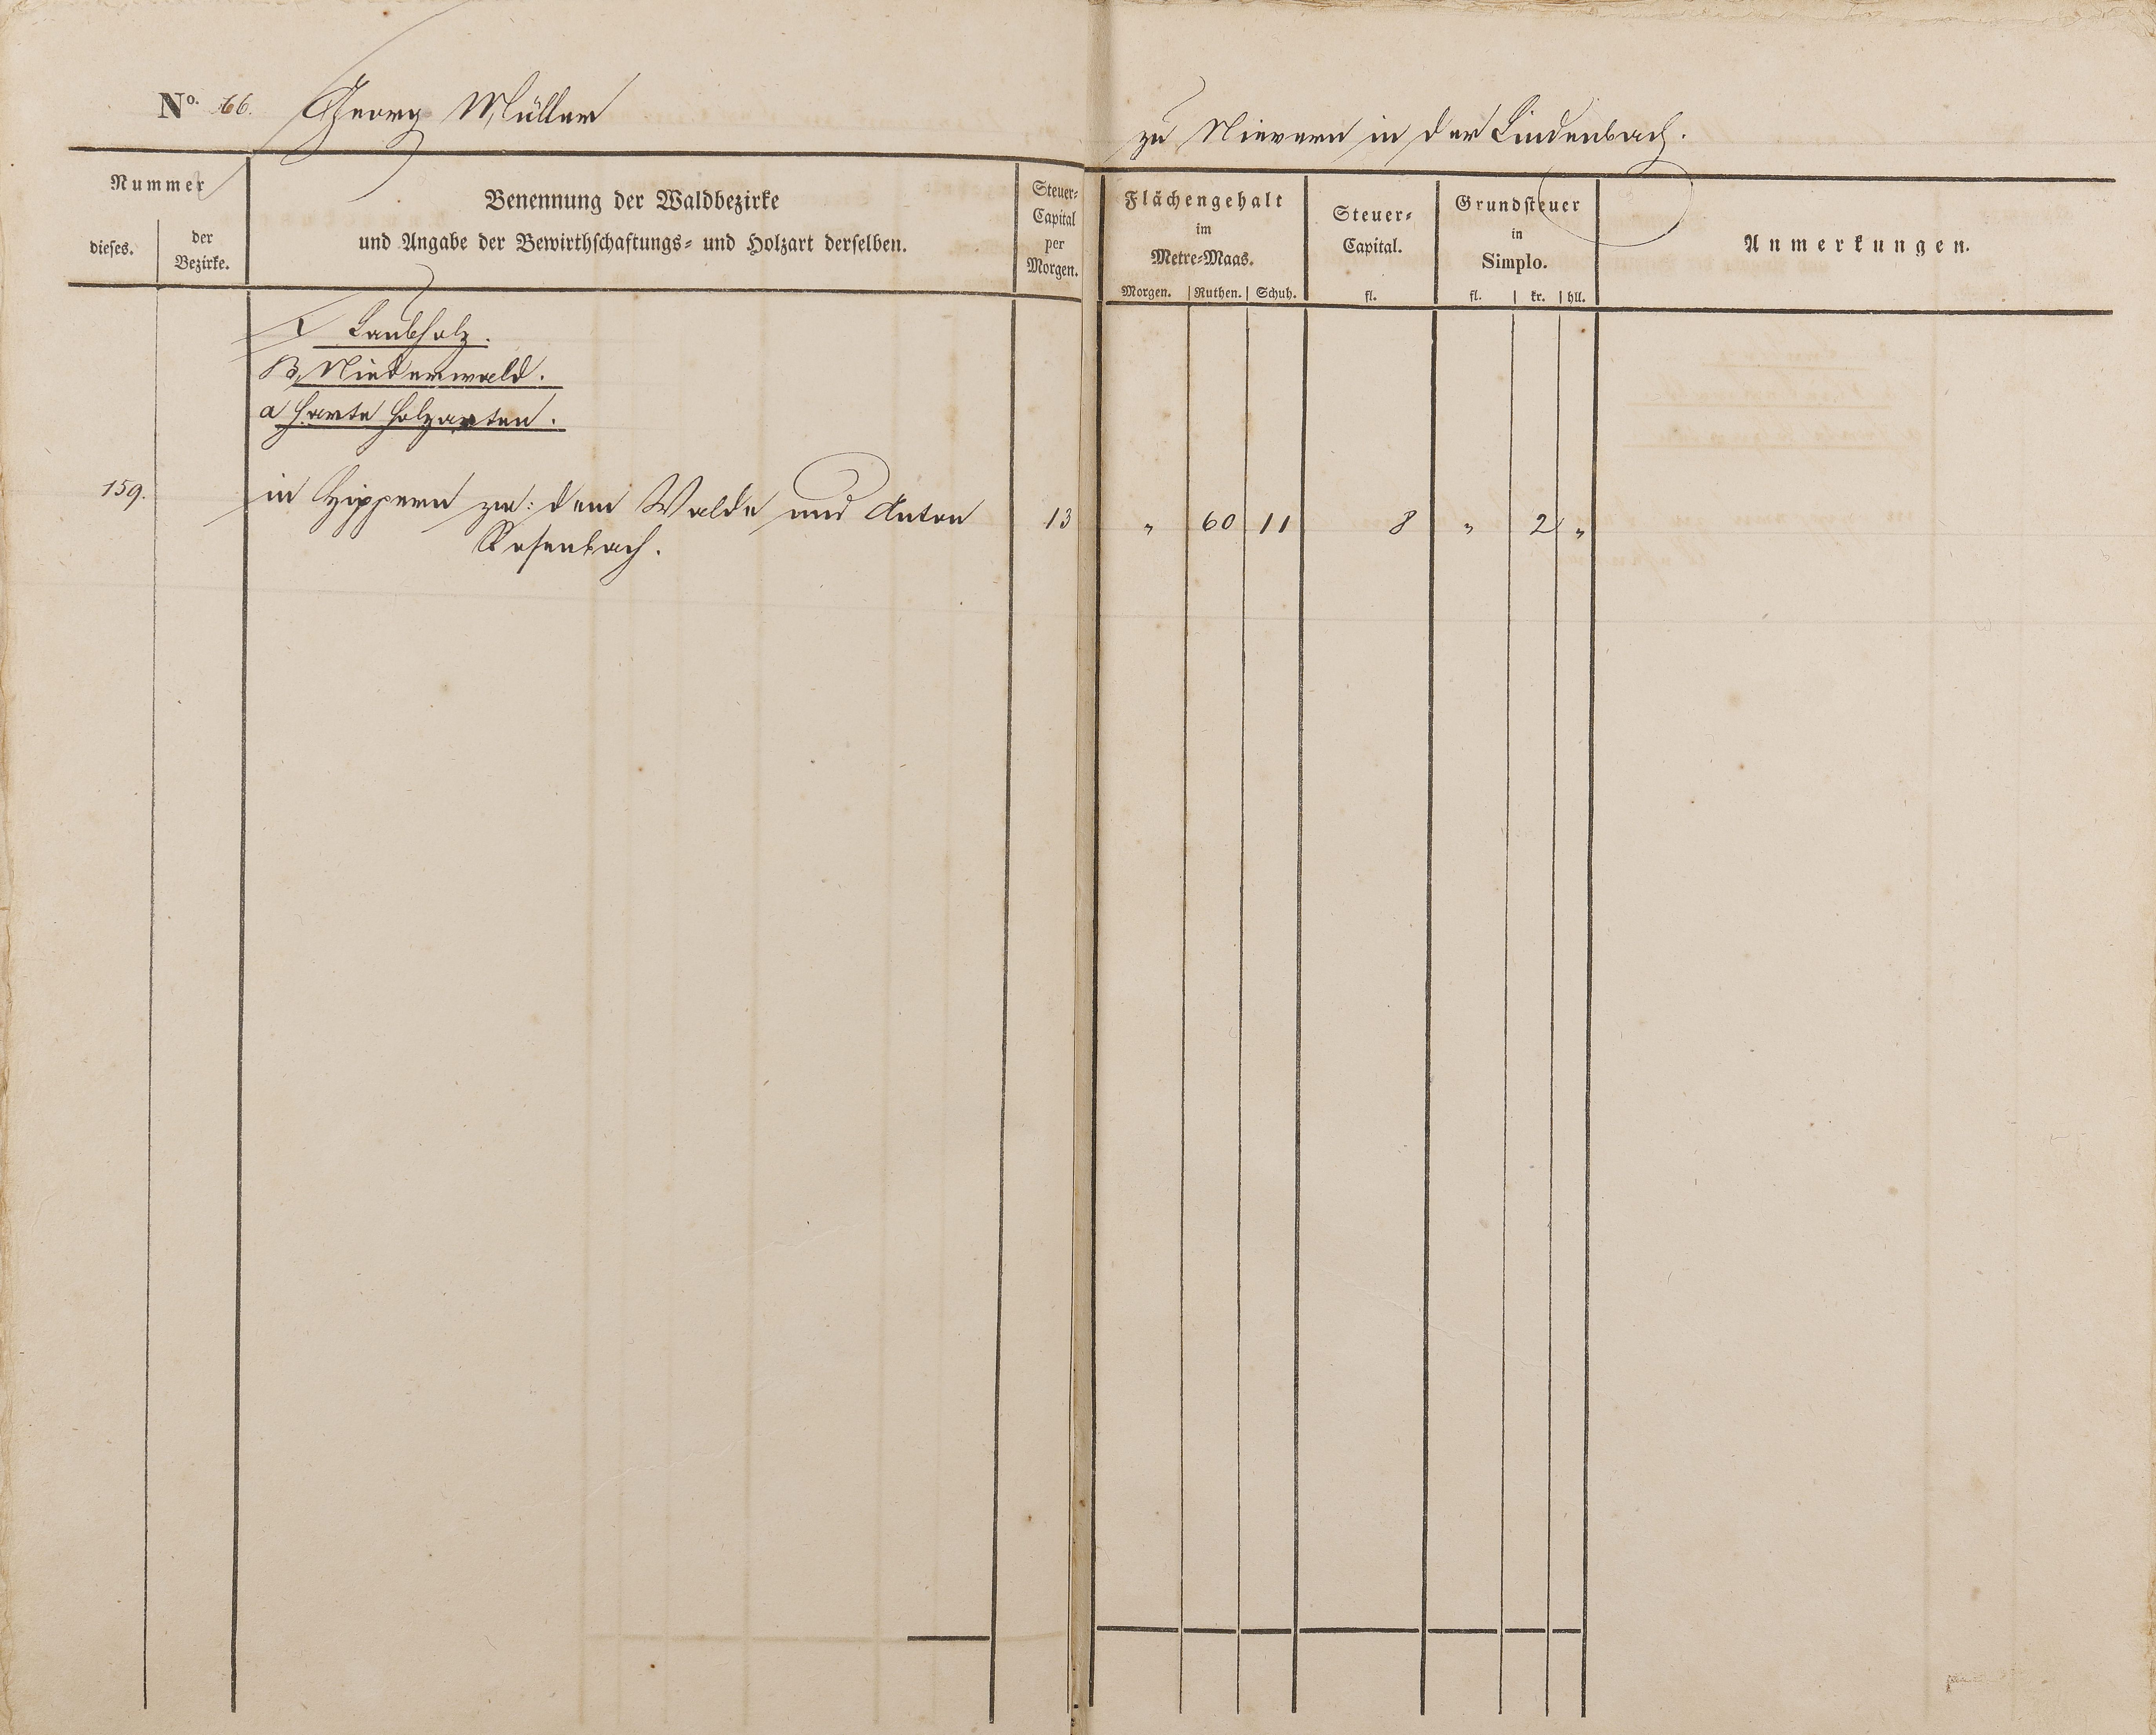 No. 66. Georg Müller
zu Nievern in der Lindenbach.
Nummer
dieses.
der
Bezirke.
Benennung der Waldbezirke
und Angabe der Bewirthschaftungs- und Holzart derselben.
Steuer-
Capital
per
Morgen.
Flächengehalt
im
Metre-Maas.
Morgen. Ruthen. Schuh.
Steuer-
Capital.
fl.
Grundsteuer
in
Simplo.
fl. kr. hll.
Anmerkungen.
Laubholz.
B, Niederwald.
a harte Holzarten.
159. in zw: dem Walde und Anton 13 " 60 11 8 " 2 "
Rosenbach.